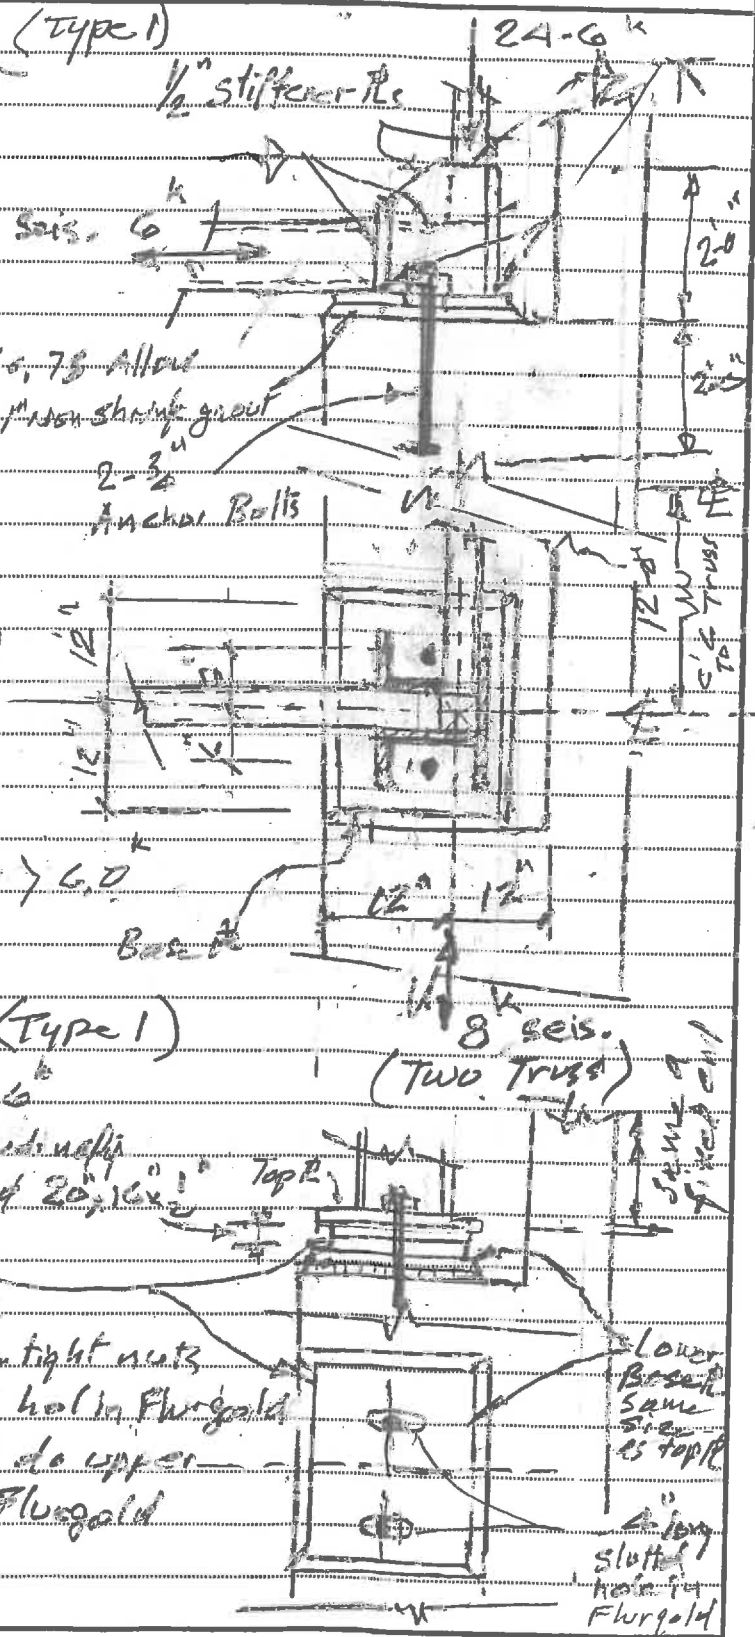 (Type 1)
24-6 k
1/2" stiffener PLs
seis. 6 k
2'-0"
Allow
1" non shrink grout
2 - 3/4"
Anchor Bolts
2'-0"
12'-0"
c'c Truss
To
12"
12"
6"
> 6.0 k
12" 12"
Base PL
8 k seis.
(Type 1)
(Two Truss)
6 k
Same as
fixed end
Top PL
20", 16" x 1/2"
tight nuts
hol in Flurgold
do upper
Flurgold
Lower
Base PL
same
size
as top PL
4" long
slotted
hole in
Flurgold